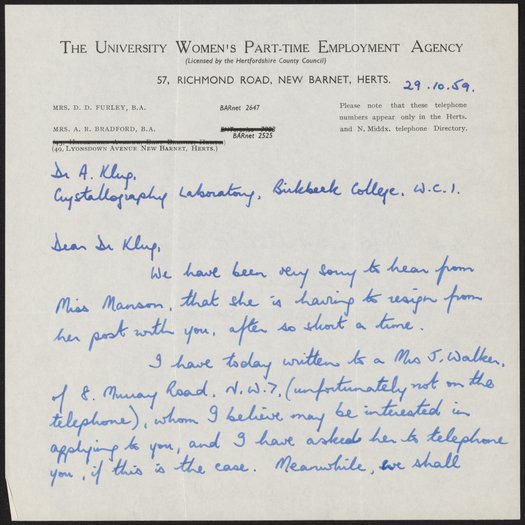 THE UNIVERSITY WOMEN'S PART-TIME EMPLOYMENT AGENCY
(Licensed by the Hertfordshire County Council)
57, RICHMOND ROAD, NEW BARNET, HERTS.
29.10.59.
MRS. D. D. FURLEY, B.A. BARnet 2647
MRS. A. R. BRADFORD, B.A.
BARnet 2525
(49, LYONSDOWN AVENUE NEW BARNET, HERTS.)
Please note that these telephone
numbers appear only in the Herts.
and N. Middx. telephone Directory.
Dr A. Klug,
Crystallography Laboratory, Birkbeck College, W.C.1.
Dear Dr Klug,
We have been very sorry to hear from
Miss Manson, that she is having to resign from
her post with you, after so short a time.
I have today written to a Mrs J. Walker,
of 8, Murray Road, N.W.7, (unfortunately not on the
telephone), whom I believe may be interested in
applying to you, and I have asked her to telephone
you, if this is the case. Meanwhile, we shall